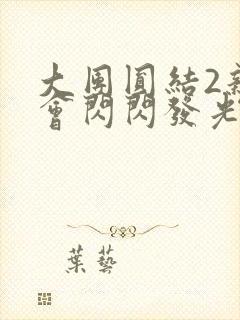 大團圓結2新
會閃閃發光
葉藝